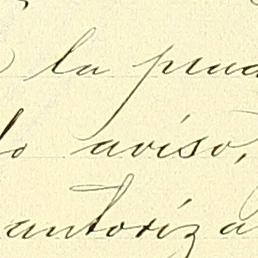 la prud
lo aviso,
autoriza